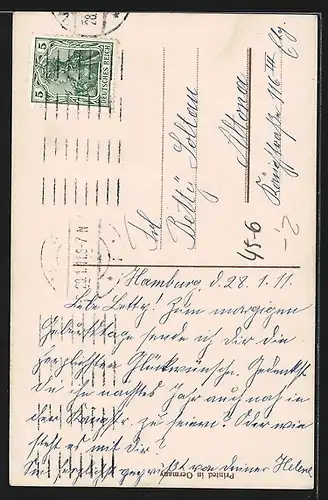 5 DEUTSCHES REICH 5
28.1.11.6-7N
Frl.
Betty Soltau
Altona
Königstraße 116 III Etg.
45-6
Hamburg, d. 28.1.11.
Liebe Betty! Zum morgigen
Geburtstage sende ich dir die
herzlichsten Glückwünsche. Gedenkst
Du ihn nächstes Jahr auch noch in
der zu feiern? Oder wie
steht es mit dir?
Sei herzlichst gegrüßt von deiner Helene
Printed in Germany